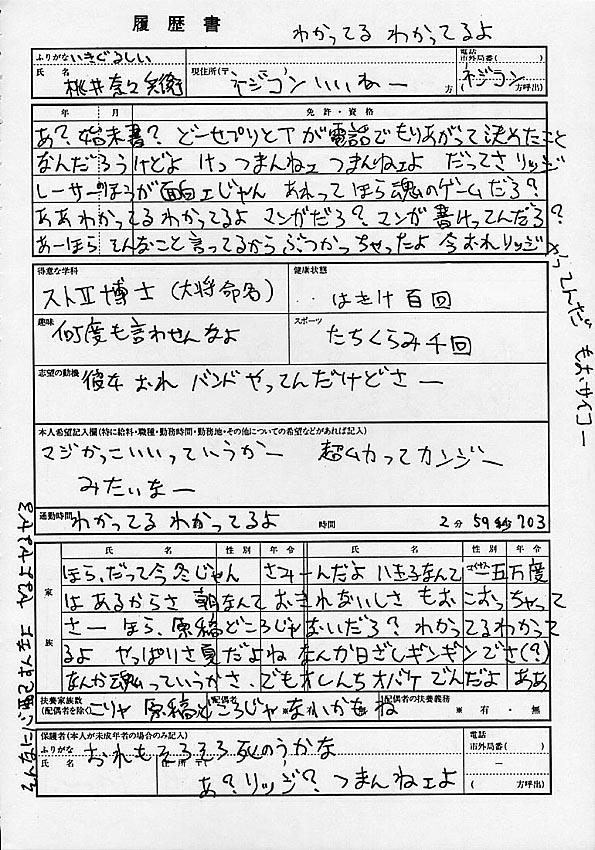 履歴書
わかってる わかってるよ
ふりがな いきぐるしい
氏名 桃井奈々
現住所(〒 ) ネジコンいいねー 方
電話
市外局番( ) ネジコン
( 方呼出)
年 月 免許・資格
あ?始末書? どーせプリとTが電話でもりあがって決めたこと
なんだろうけどよ けっつまんねェ つまんねェよ だってさ リッジ
レーサーのほうが面白エじゃん あれってほら魂のゲームだろ?
ああわかってるわかってるよ マンガだろ?マンガ書けってんだろ?
あーほら てんなこと言ってるからぶつかっちゃったよ 今おれリッジ
やってんだ もおサイコー
得意な学科 ストⅡ博士(大将命名)
健康状態 ‥はきけ百回
趣味 何度も言わせんなよ
スポーツ たちくらみ千回
志望の動機 彼女 おれ バンドやってんだけどさー
本人希望記入欄(特に給料・職種・勤務時間・勤務地・その他についての希望などがあれば記入)
マジかっこいいっていうかー 超ムカってカンジー
みたいなー
通勤時間 わかってる わかってるよ 時間 2分59秒703
氏名 性別 年令 氏名 性別 年令
家族
ほら、だって今冬じゃん さみーんだよ 八王子なんて 一五万度
はあるからさ 朝なんておきれないしさ もおこおっちゃって
さー ほら、原稿どころじゃないだろ?わかってるわかって
るよ やっぱりさ夏だよね なんか日ざしギンギンでさ(?)
なんか魂っていうがさ、でもオレんちオバケでんだよ ああ
扶養家族数(配偶者を除く) 配偶者 ※ 配偶者の扶養義務 ※ 有・無
こりゃ 原稿どころじゃないかもね
保護者(本人が未成年者の場合のみ記入)
ふりがな
氏名 住所(〒
おれもそろそろ死のうかな
あ?リッジ? つまんねェよ
電話
市外局番( )
―
( 方呼出)